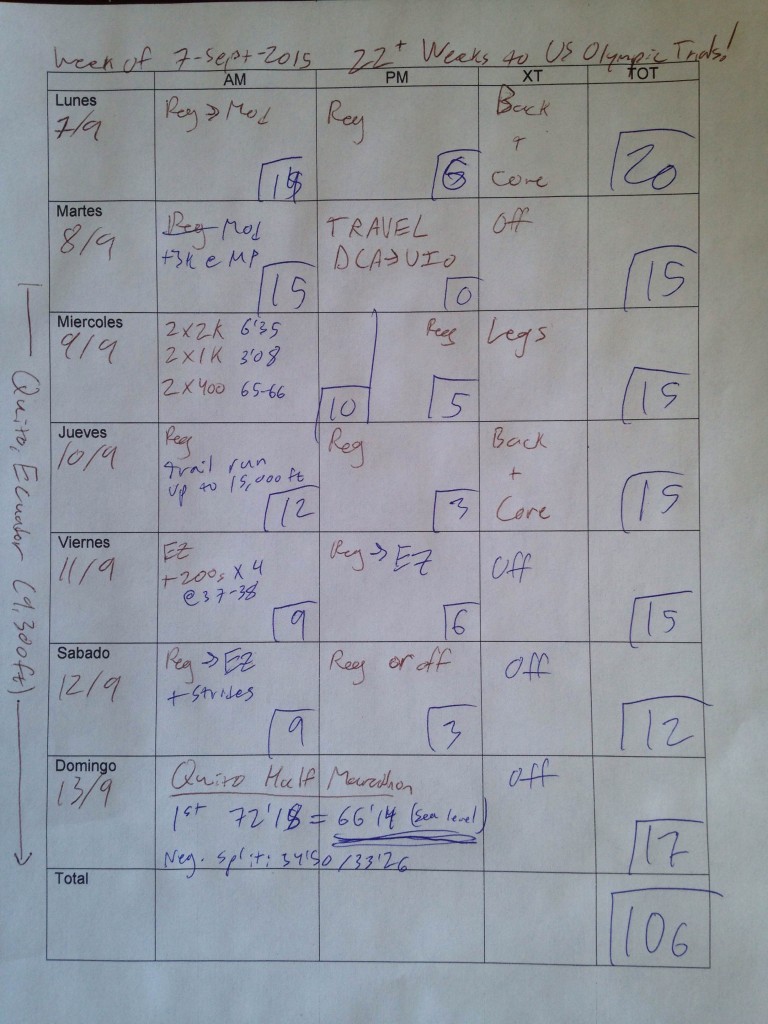 Week of 7-Sept-2015 22+ Weeks to US Olympic Trials!
AM PM XT TOT
Lunes
7/9
Reg → Mod
Reg
6
Back
+
Core
20
Martes
8/9
Reg Mod
+3K @ MP
15
TRAVEL
DCA→UIO
0
Off
15
Miercoles
9/9
2x2K 6'35
2x1K 3'08
2x400 65-66
10
Reg
5
Legs
15
Jueves
10/9
Reg
trail run
up to 15,000ft
12
Reg
3
Back
+
Core
15
Viernes
11/9
EZ
+200s x 4
@ 37-38
9
Reg → EZ
6
Off
15
Sabado
12/9
Reg → EZ
+ strides
9
Reg or off
3
Off
12
Domingo
13/9
Quito Half Marathon
1st 72'18 = 66'14 (sea level)
Neg. split: 34'50/33'26
Off
17
Total
106
Quito, Ecuador (9,300ft)